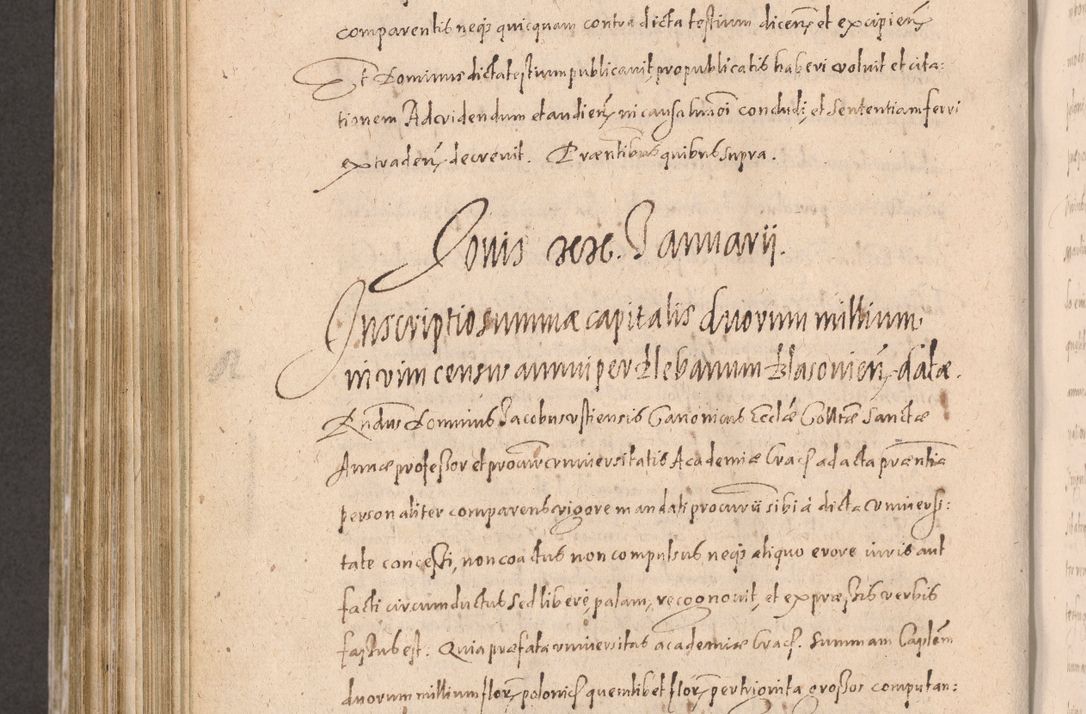 comparentis neqꝫ quicquam contra dicta testium dicen̄ et excipien̄
Et Dominus dicta testium publicavit, pro publicatis haberi voluit et cita:
tionem Ad videndum et audien̄ in causa hm̄oi concludi, et Sententiam ferri
extraden̄ decrevit. Præntibus quibus supra.
Jovis xxx. Januarij.
Inscriptio summæ capitalis duorum millium
in vim census annui per Plebanum Blasovien̄ datæ.
Rn̄dus Dominus Jacobus Ustiensis Canonicus Eccl̄æ Coll̄tæ Sanctæ
Annæ professor et procur̄ universitatis Academiæ Crac̄ ad acta præn̄tia
personaliter comparens vigore mandati procur̄ij sibi à dicta Universi:
tate concessi, non coactus non compulsus, neqꝫ aliquo errore iuris aut
facti circumductus sed liberè, palam, recognovit, et expræssis verbis
fassus est: Quia præfata universitas academiæ Crac̄. Summam Capl̄em
duorum millium flor̄ polonic̄ quemlibet flor̄ per triginta grossos computan: